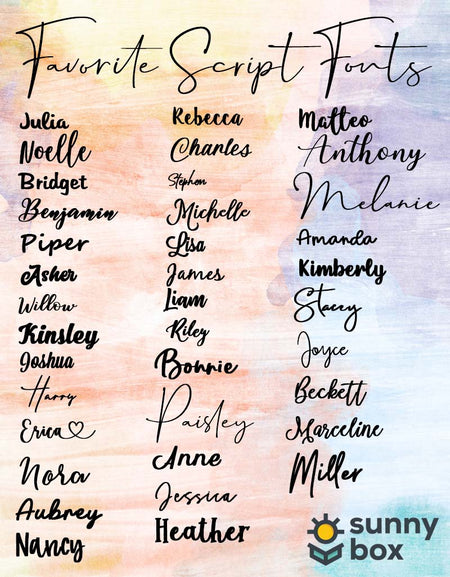 Favorite Script Fonts
Julia
Noelle
Bridget
Benjamin
Piper
Asher
Willow
Kinsley
Joshua
Harry
Erica
Nora
Aubrey
Nancy
Rebecca
Charles
Stephen
Michelle
Lisa
James
Liam
Riley
Bonnie
Paisley
Anne
Jessica
Heather
Matteo
Anthony
Melanie
Amanda
Kimberly
Stacey
Joyce
Beckett
Marceline
Miller
sunny
box